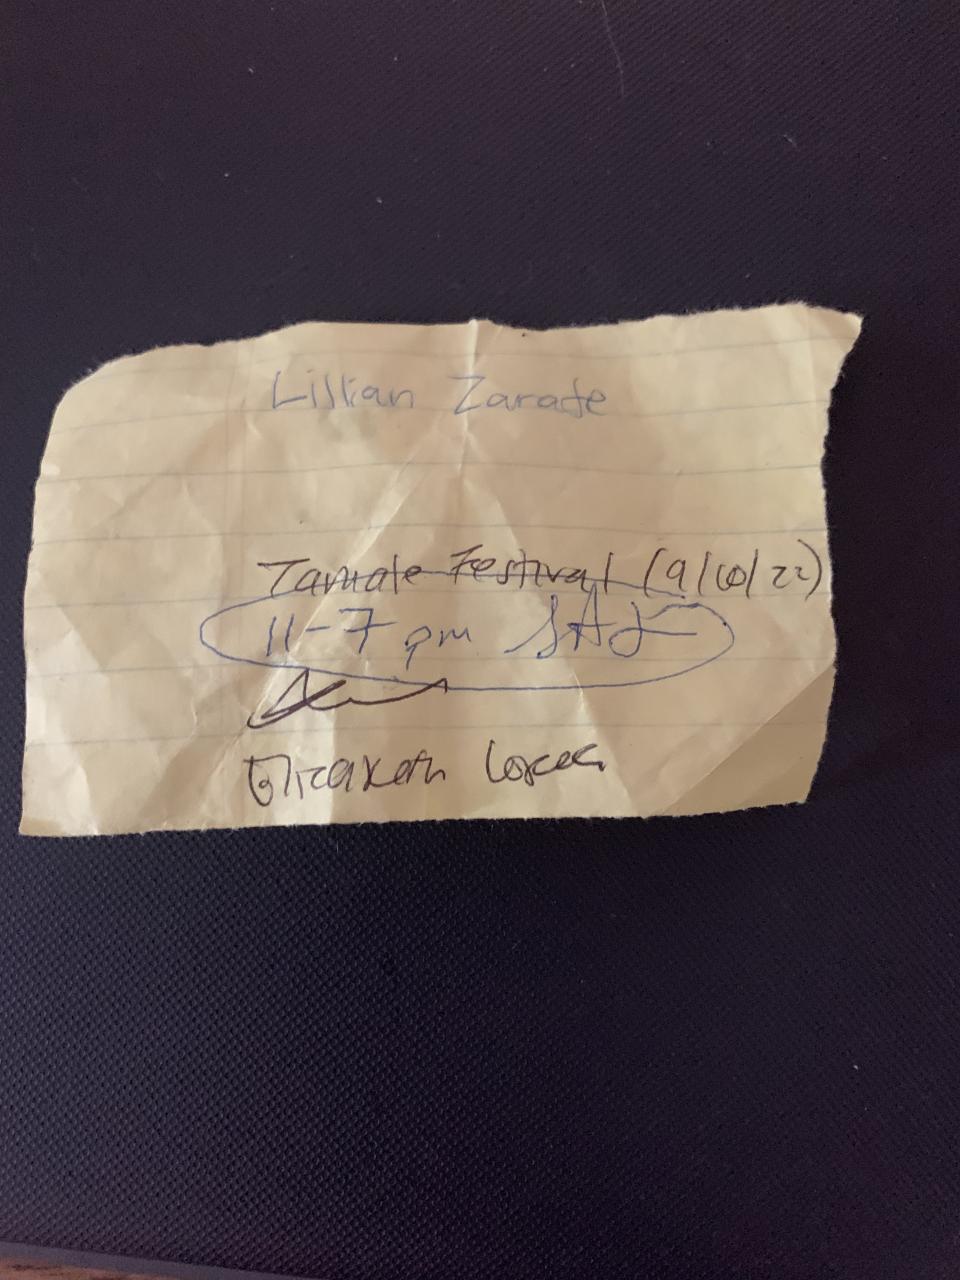 Lillian Zarate
Tamale Festival (9/10/22)
11-7 pm SAT
Elizabeth